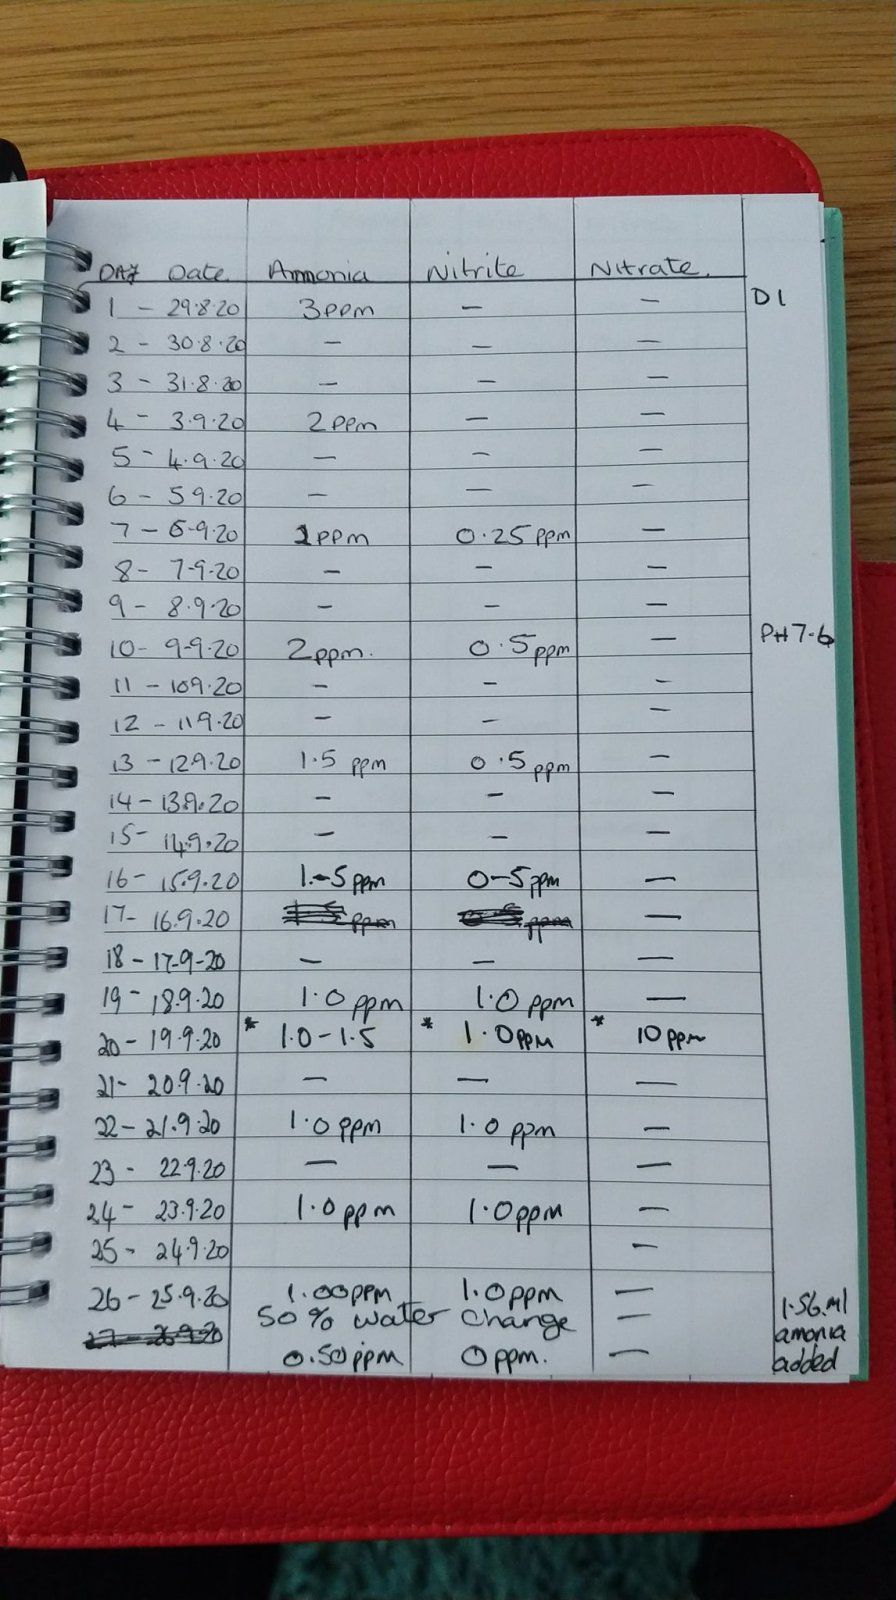 DAY Date Ammonia Nitrite Nitrate.
1 - 29.8.20 3ppm - - D1
2 - 30.8.20 - - -
3 - 31.8.20 - - -
4 - 3.9.20 2ppm - -
5 - 4.9.20 - - -
6 - 5 9.20 - - -
7 - 6.9.20 1ppm 0.25ppm -
8 - 7.9.20 - - -
9 - 8.9.20 - - -
10 - 9.9.20 2ppm. 0.5ppm - PH 7.6
11 - 109.20 - - -
12 - 119.20 - - -
13 - 129.20 1.5 ppm 0.5ppm -
14 - 139.20 - - -
15 - 14.9.20 - - -
16 - 15.9.20 1.-5ppm 0-5ppm -
17 - 16.9.20 ppm ppm -
18 - 17-9-20 - - -
19 - 18.9.20 1.0ppm 1.0ppm -
20 - 19.9.20 * 1.0-1.5 * 1.0ppm * 10ppm
21 - 209.20 - - -
22 - 21.9.20 1.0ppm 1.0ppm -
23 - 229.20 - - -
24 - 23.9.20 1.0ppm 1.0ppm -
25 - 24.9.20 -
26 - 25.9.20 1.00ppm 1.0ppm - 1.56.ml
50% water change - amonia
27 - 26.9.20 0.50ppm 0ppm. - added